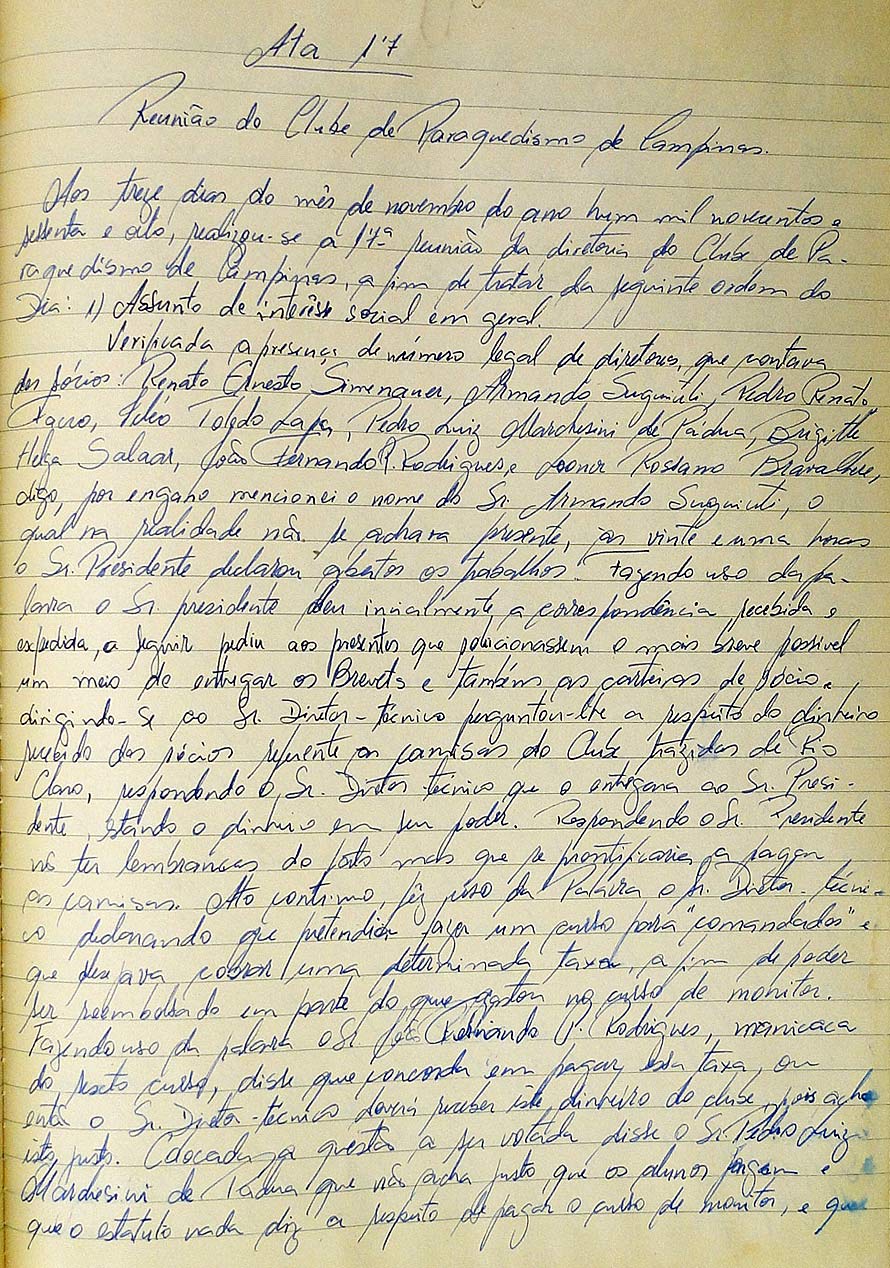 Ata 17
Reunião do Clube de Paraquedismo de Campinas.
Aos treze dias do mês de novembro do ano hum mil novecentos e
sessenta e oito, realizou-se a 17ª reunião da diretoria do Clube de Pa-
raquedismo de Campinas, a fim de tratar da seguinte ordem do
Dia: 1) Assunto de interêsse social em geral.
Verificada a presença de número legal de diretores, que contava
dos sócios: Renato Ernesto Simenauer, Armando Suguiuti, Pedro Renato
Toledo Lapa, Pedro Luiz Marchesini de Pádua, Brigitte
Helga Salaar, João Fernando P. Rodrigues e Rostano
digo, por engano mencionei o nome do Sr. Armando Suguiuti, o
qual na realidade não se achava presente, as vinte e uma horas
o Sr. Presidente declarou abertos os trabalhos. Fazendo uso da pa-
lavra o Sr. presidente leu inicialmente a correspondência recebida e
expedida, a seguir pediu aos presentes que posicionassem o mais breve possível
um meio de entregar os Brevets e também as carteiras de sócio e,
dirigindo-se ao Sr. Diretor-técnico perguntou-lhe a respeito do dinheiro
recebido dos sócios referente as camisas do Clube trazidas de Rio
Claro, respondendo o Sr. Diretor-técnico que o entregara ao Sr. Presi-
dente, estando o dinheiro em seu poder. Respondendo o Sr. Presidente
não ter lembranças do fato mas que se prontificaria a pagar
as camisas. Ato contínuo, fêz uso da Palavra o Sr. Diretor-técni-
co declarando que pretendia fazer um curso para "comandados" e
que desejava cobrar uma determinada taxa, a fim de poder
ser reembolsado em parte do que gastou no curso de monitor.
Fazendo uso da palavra o Sr. João Fernando P. Rodrigues, manicaca
do sexto curso, disse que concorda em pagar essa taxa, ou
então o Sr. Diretor-técnico deverá receber êste dinheiro do clube, pois acha
isto justo. Colocada a questão a ser votada disse o Sr. Pedro Luiz
Marchesini de Pádua que não acha justo que os alunos paguem e
que o estatuto nada diz a respeito de pagar o curso de monitor, e que